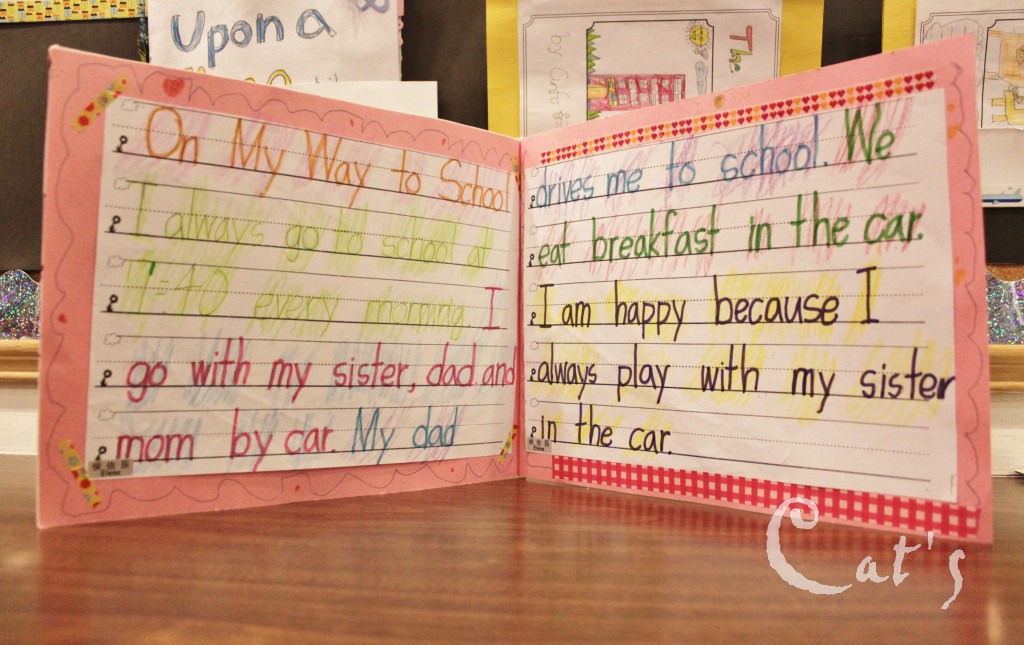 Upon a
The
On My Way to School
I always go to school at
7:40 every morning. I
go with my sister, dad and
mom by car. My dad
drives me to school. We
eat breakfast in the car.
I am happy because I
always play with my sister
in the car.
Elena
Elena
Cat's